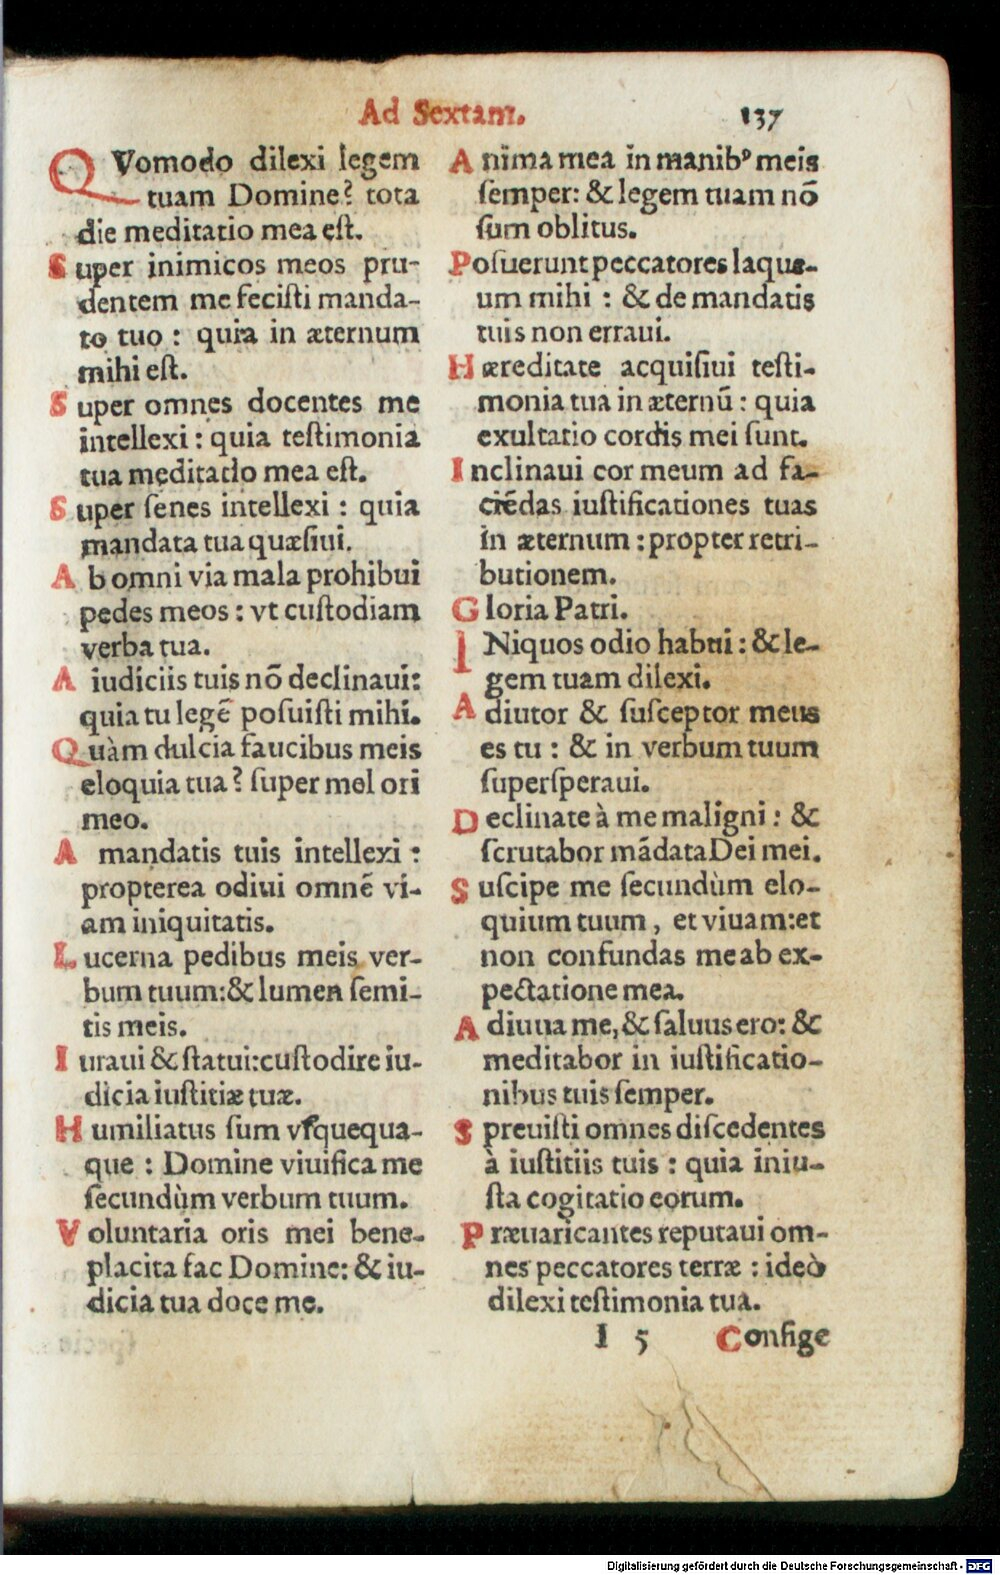 Ad Sextam.
137
QVomodo dilexi legem
tuam Domine? tota
die meditatio mea eſt.
Super inimicos meos pru-
dentem me feciſti manda-
to tuo : quia in æternum
mihi eſt.
Super omnes docentes me
intellexi : quia teſtimonia
tua meditatio mea eſt.
Super ſenes intellexi : quia
mandata tua quæſiui.
Ab omni via mala prohibui
pedes meos : vt cuſtodiam
verba tua.
A iudiciis tuis nõ declinaui:
quia tu legẽ poſuiſti mihi.
Quàm dulcia faucibus meis
eloquia tua? ſuper mel ori
meo.
A mandatis tuis intellexi :
propterea odiui omnẽ vi-
am iniquitatis.
Lucerna pedibus meis ver-
bum tuum:& lumen ſemi-
tis meis.
Iuraui & ſtatui:cuſtodire iu-
dicia iuſtitiæ tuæ.
Humiliatus ſum vſquequa-
que : Domine viuifica me
ſecundùm verbum tuum.
Voluntaria oris mei bene-
placita fac Domine: & iu-
dicia tua doce me.
Anima mea in manibꝰ meis
ſemper: & legem tuam nõ
ſum oblitus.
Poſuerunt peccatores laque-
um mihi : & de mandatis
tuis non erraui.
Hæreditate acquiſiui teſti-
monia tua in æternũ : quia
exultatio cordis mei ſunt.
Inclinaui cor meum ad fa-
ciẽdas iuſtificationes tuas
in æternum : propter retri-
butionem.
Gloria Patri.
INiquos odio habui : & le-
gem tuam dilexi.
Adiutor & ſuſceptor meus
es tu : & in verbum tuum
ſuperſperaui.
Declinate à me maligni : &
ſcrutabor mãdata Dei mei.
Suſcipe me ſecundùm elo-
quium tuum , et viuam:et
non confundas me ab ex-
pectatione mea.
Adiuua me, & ſaluus ero: &
meditabor in iuſtificatio-
nibus tuis ſemper.
Spreuiſti omnes diſcedentes
à iuſtitiis tuis : quia iniu-
ſta cogitatio eorum.
Præuaricantes reputaui om-
nes peccatores terræ : ideò
dilexi teſtimonia tua.
I 5 Confige
Digitalisierung gefördert durch die Deutsche Forschungsgemeinschaft - DFG